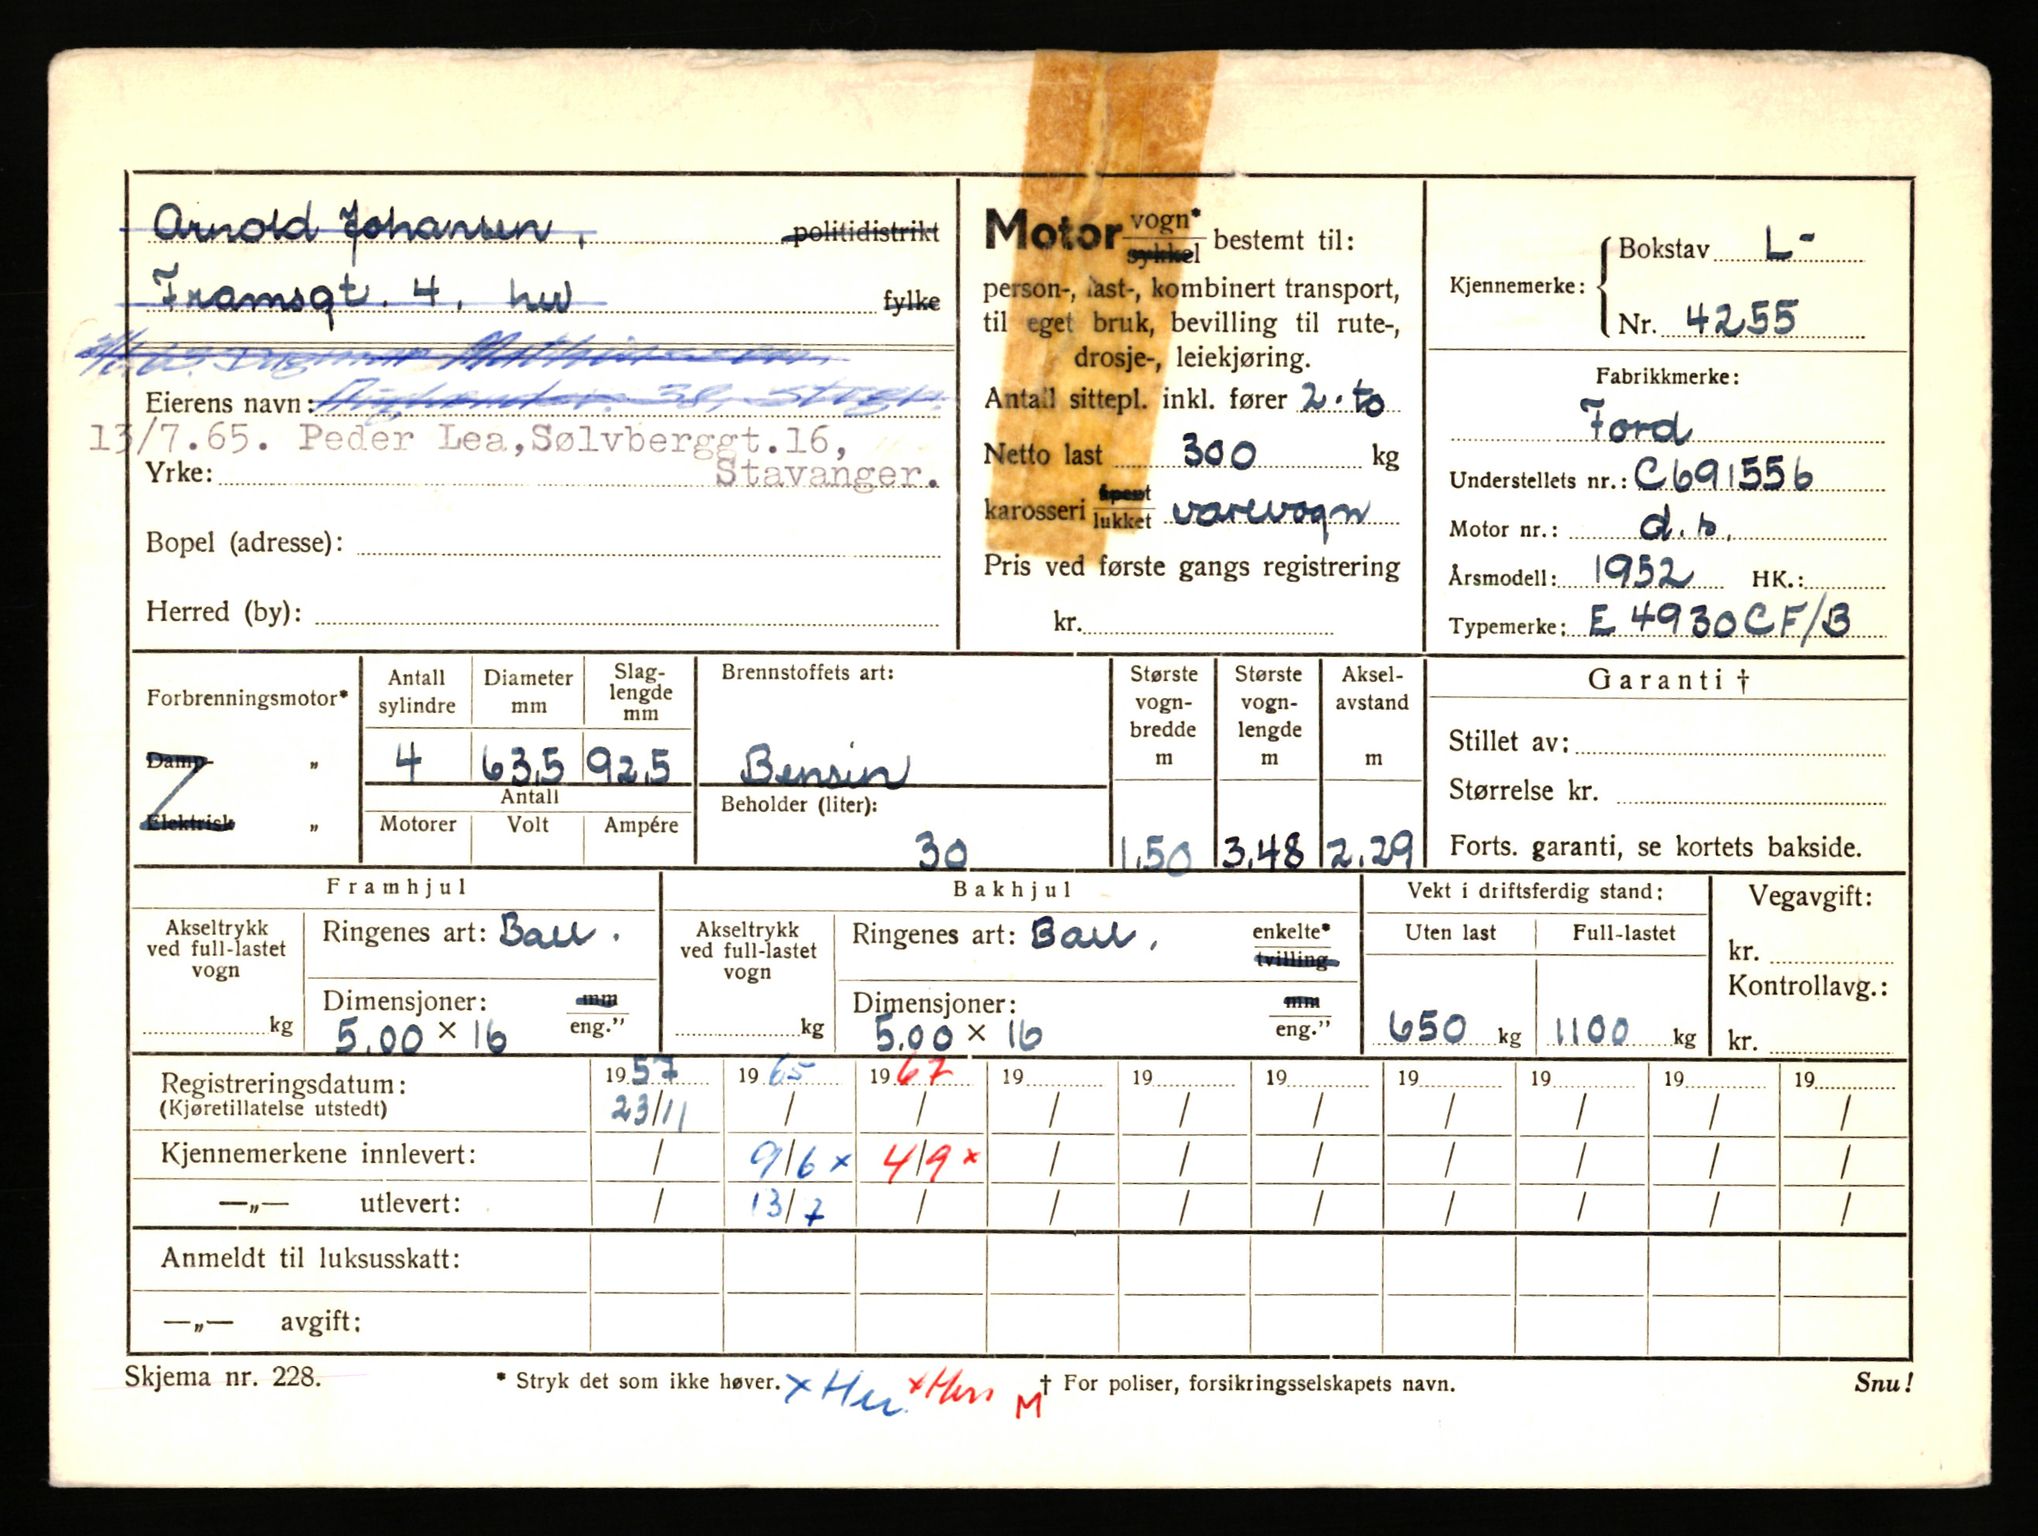 Arnold Johansen, politidistrikt
Framsgt. 4. hw fylke
Eierens navn: 38,
13/7.65. Peder Lea,Sølvberggt.16,
Yrke: Stavanger.
Bopel (adresse):
Herred (by):
Motor vogn* / sykkel bestemt til:
person-, last-, kombinert transport,
til eget bruk, bevilling til rute-,
drosje-, leiekjøring.
Antall sittepl. inkl. fører 2. to
Netto last 300 kg
karosseri åpent / lukket varevogn
Pris ved første gangs registrering
kr.
Kjennemerke: Bokstav L-
Nr. 4255
Fabrikkmerke:
Ford
Understellets nr.: C691556
Motor nr.: d.s.
Årsmodell: 1952 HK.:
Typemerke: E 4930CF/B
Forbrenningsmotor*
Damp- „
Elektrisk „
Antall sylindre
4
Diameter mm
63,5
Slag-lengde mm
92,5
Antall
Motorer Volt Ampére
Brennstoffets art:
Bensin
Beholder (liter):
30
Største vogn-bredde m
1,50
Største vogn-lengde m
3,48
Aksel-avstand m
2,29
Garanti †
Stillet av:
Størrelse kr.
Forts. garanti, se kortets bakside.
Framhjul
Akseltrykk ved full-lastet vogn
kg
Ringenes art: Ball.
Dimensjoner: mm / eng."
5.00 × 16
Bakhjul
Akseltrykk ved full-lastet vogn
kg
Ringenes art: Ball. enkelte* tvilling
Dimensjoner: mm / eng."
5.00 × 16
Vekt i driftsferdig stand:
Uten last Full-lastet
650 kg 1100 kg
Vegavgift:
kr.
Kontrollavg.:
kr.
Registreringsdatum: 1957 1965 1967 19 19 19 19 19 19 19
(Kjøretillatelse utstedt) 23/11 / / / / / / / / /
Kjennemerkene innlevert: / 9/6 x 4/9 x / / / / / / /
—„— utlevert: / 13/7 / / / / / / / /
Anmeldt til luksusskatt:
—„— avgift:
Skjema nr. 228. * Stryk det som ikke høver. x x M † For poliser, forsikringsselskapets navn. Snu!